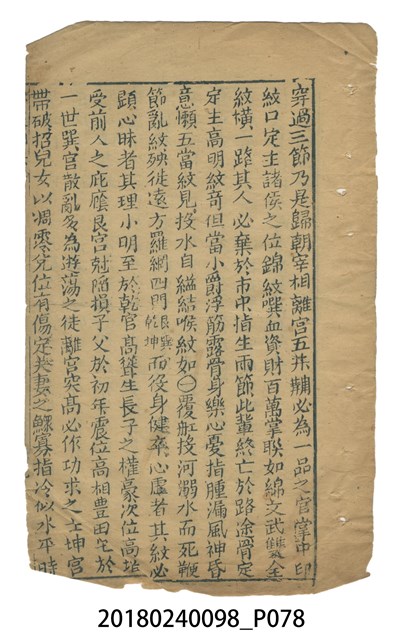 穿過三節乃是歸朝宰相離宮五井朝必為一品之官掌中印
紋口定主諸侯之位錦紋巽血資財百萬掌軟如綿文武雙全
紋橫一路其人必棄於市中指生兩節此輩終亡於路途骨定
定主高明紋奇但當小爵浮筋露骨身樂心憂指腫漏風神昏
意懶五當紋見投水自縊結喉紋如一覆缸投河溺水而死鞭
節亂紋殃徒遠方羅網四門艮巽乾坤而役身健卒心虛者其紋必
顕心昧者其理小明至於乾宮高聳生長子之權豪次位高堆
受前人之庇廕艮宮尅陷損子父於初年震位高相豊田宅於
一世巽宮散亂多為遊蕩之徒離宮突高必作功求之士坤宮
帶破招兒女以凋零兌位有傷定夫妻之鰥寡指冷似水平時
20180240098_P078